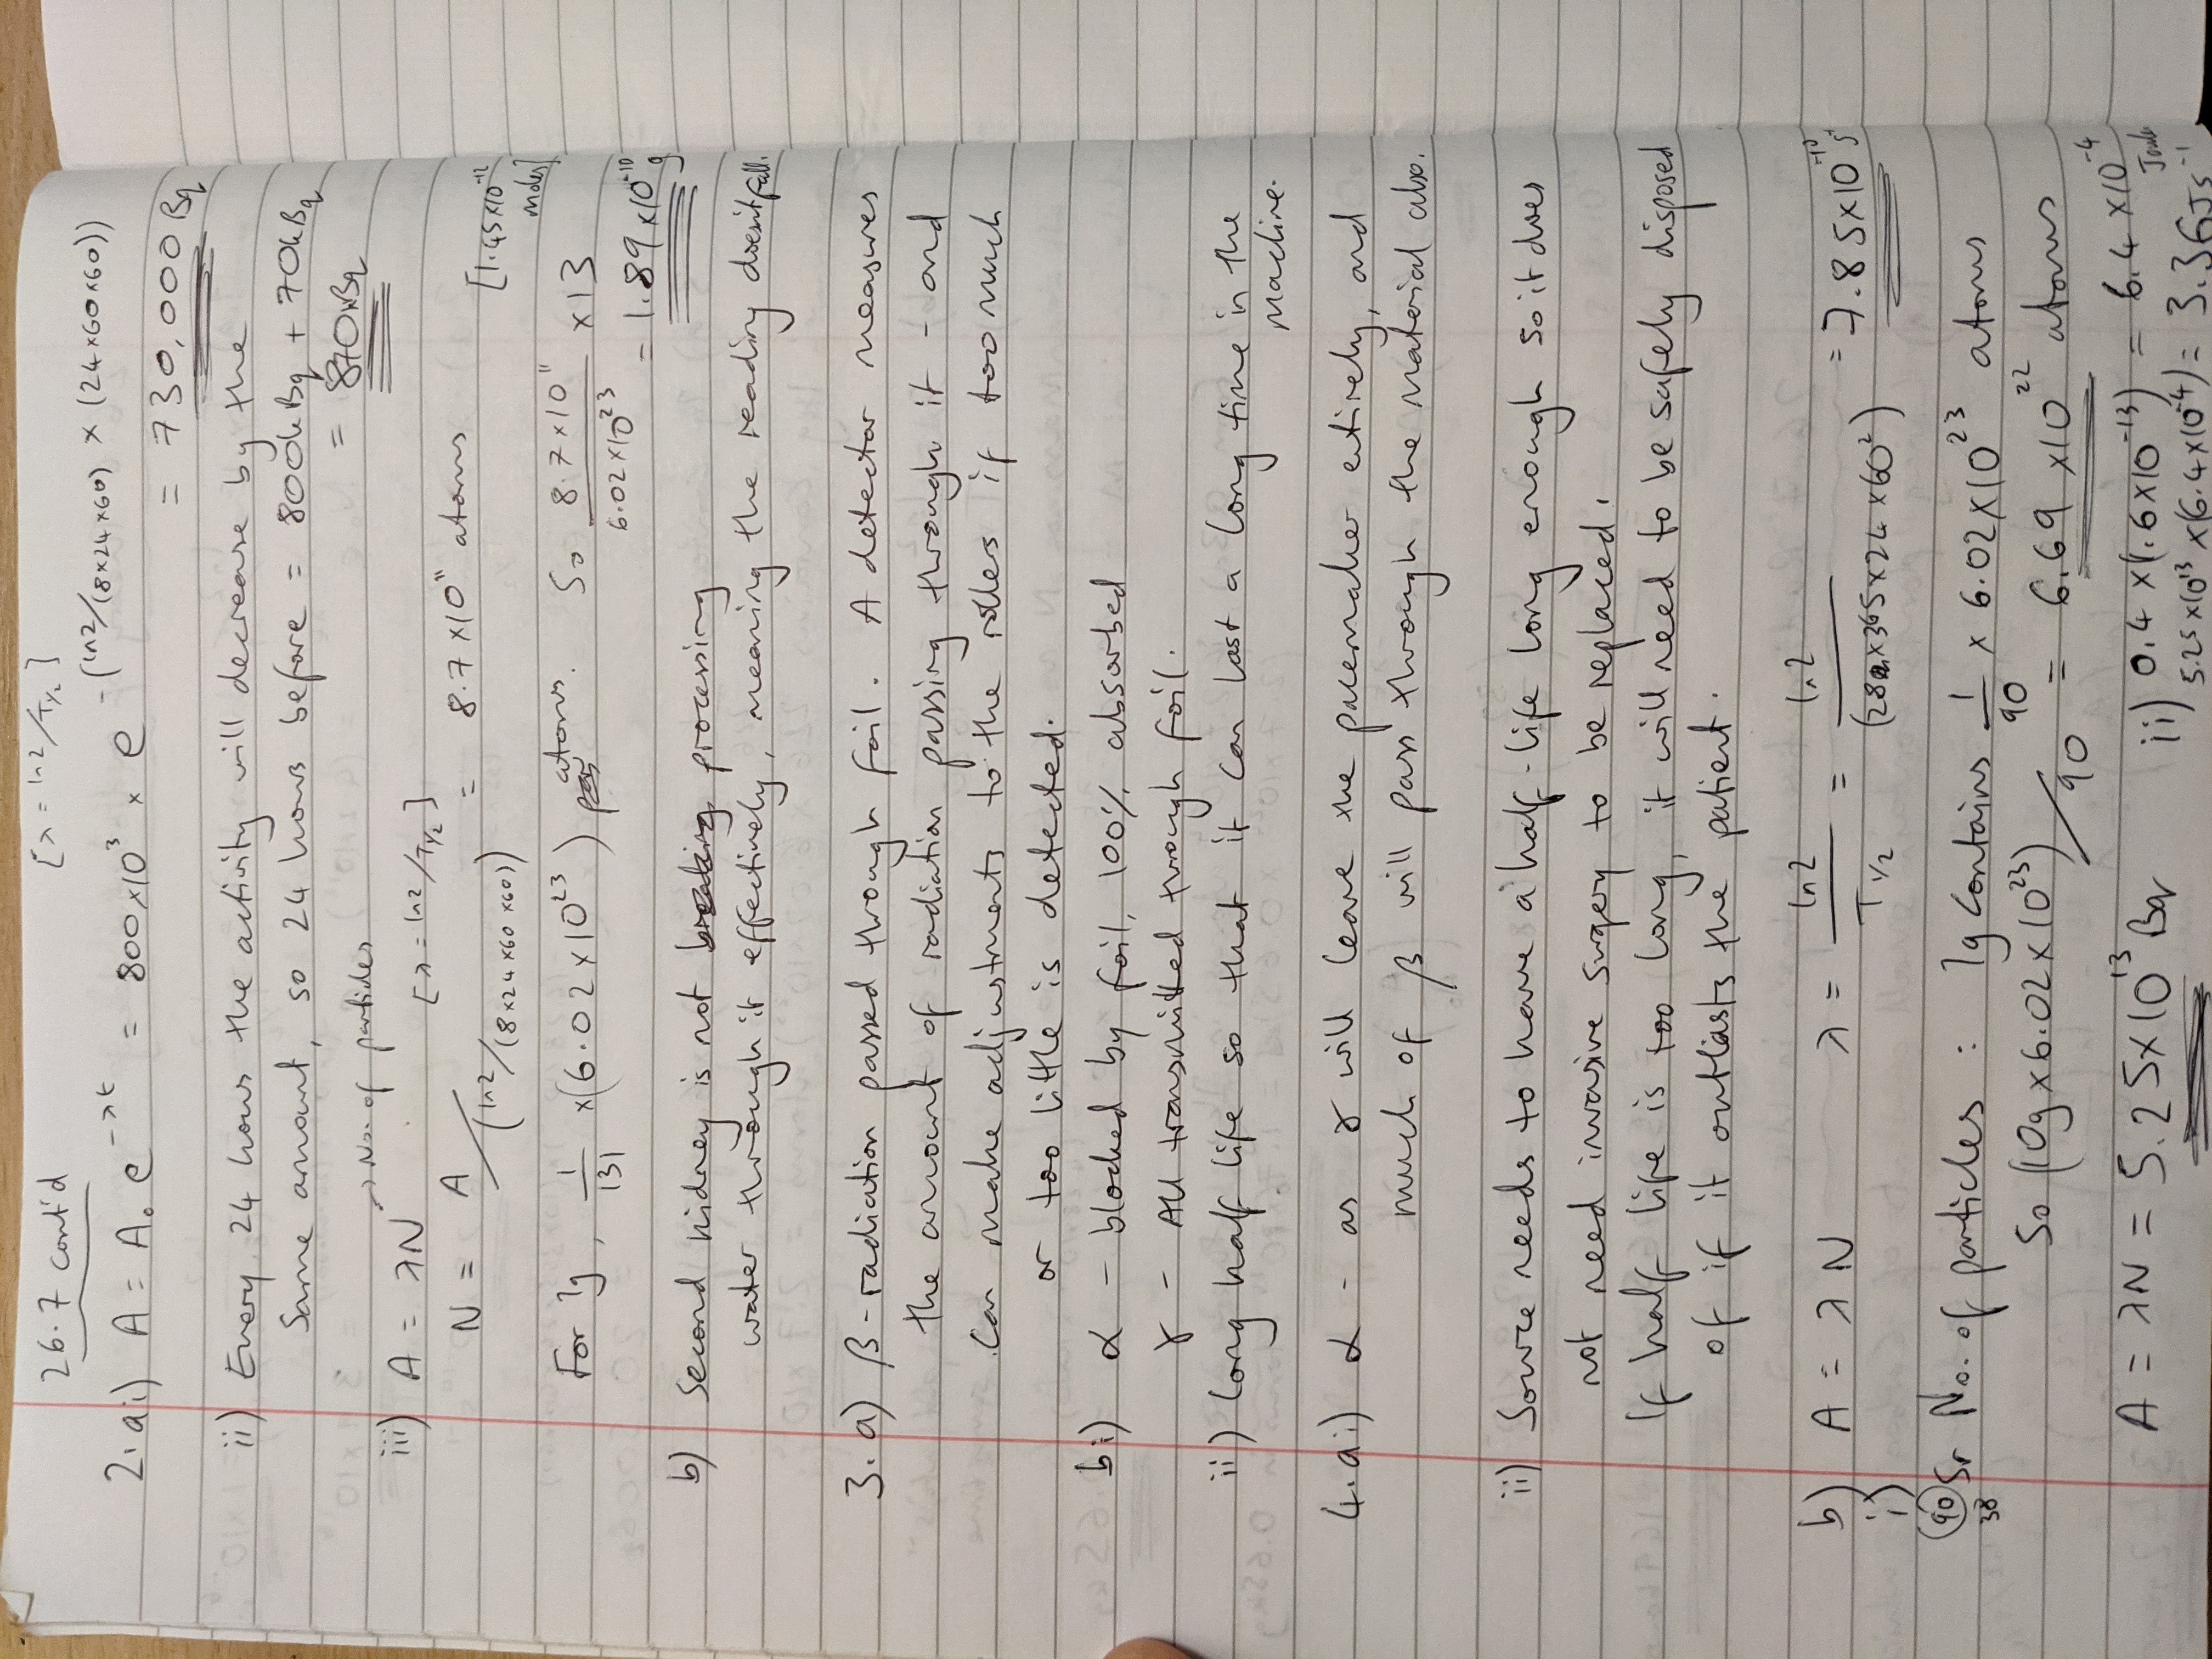 26.7 cont'd
[λ = ln2/T½]
2. ai) A = A₀ e^-λt = 800×10³ × e^-(ln2/(8×24×60) × (24×60×60))
= 730,000 Bq
ii) Every 24 hours the activity will decrease by the
same amount, so 24 hours before = 800kBq + 70kBq
= 870kBq
→ No. of particles
iii) A = λN [λ = ln2/T½]
N = A/(ln2/(8×24×60×60)) = 8.7×10¹¹ atoms [1.45×10⁻¹² moles]
For 1g, 1/131 ×(6.02×10²³) atoms. So 8.7×10¹¹/6.02×10²³ ×13
= 1.89×10⁻¹⁰ g
b) Second kidney is not processing
water through it effectively, meaning the reading doesn't fall.
3. a) β-radiation passed through foil. A detector measures
the amount of radiation passing through it - and
can make adjustments to the rollers if too much
or too little is detected.
bi) α - blocked by foil, 100% absorbed
γ - All transmitted through foil.
ii) Long half life so that it can last a long time in the
machine.
4.ai) α - as γ will leave the pacemaker entirely, and
much of β will pass through the material also.
ii) Source needs to have a half-life long enough so it does
not need invasive surgery to be replaced.
If half life is too long, it will need to be safely disposed
of if it outlasts the patient.
b) i) A = λN λ = ln2/T½ = ln2/(28×365×24×60²) = 7.85×10⁻¹⁰ s⁻¹
⁹⁰₃₈Sr No. of particles : 1g contains 1/90 × 6.02×10²³ atoms
So (10g×6.02×10²³)/90 = 6.69×10²² atoms
A = λN = 5.25×10¹³ Bq
ii) 0.4×(1.6×10⁻¹³) = 6.4×10⁻⁴ Joule
5.25×10¹³×(6.4×10⁻⁴) = 3.36Js⁻¹